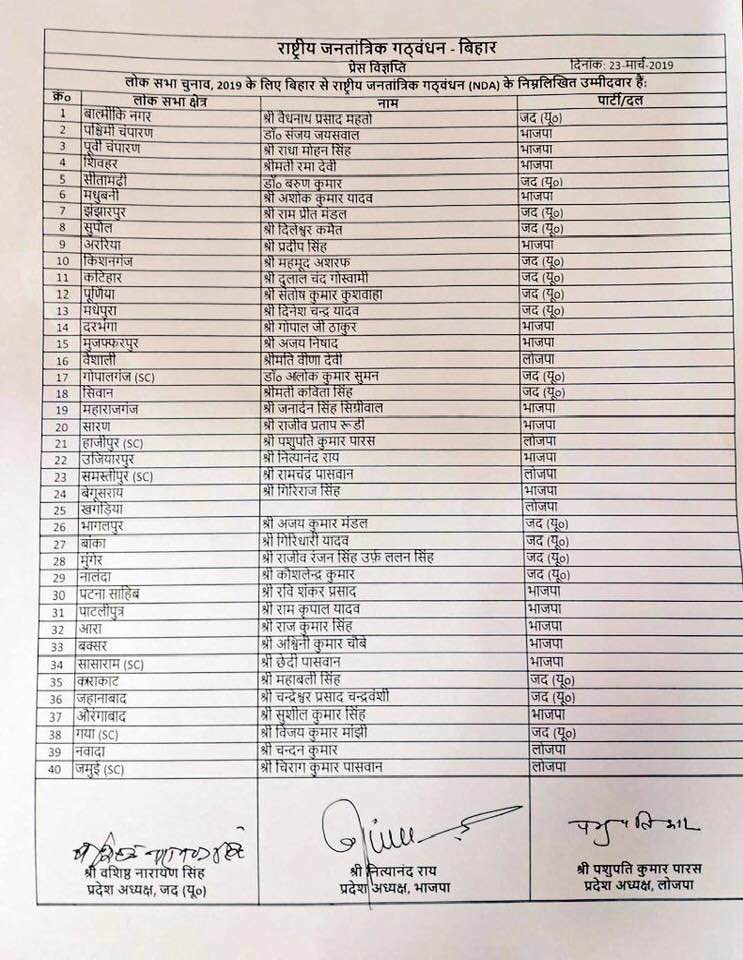 राष्ट्रीय जनतांत्रिक गठ्वंधन - बिहार
प्रेस विज्ञप्ति दिनांक: 23-मार्च-2019
लोक सभा चुनाव, 2019 के लिए बिहार से राष्ट्रीय जनतांत्रिक गठ्वंधन (NDA) के निम्नलिखित उम्मीदवार है:
क्र० लोक सभा क्षेत्र नाम पार्टी/दल
1 बाल्मीकि नगर श्री वैधनाथ प्रसाद महतो जद (यू०)
2 पश्चिमी चंपारण डॉ० संजय जयसवाल भाजपा
3 पूर्वी चंपारण श्री राधा मोहन सिंह भाजपा
4 शिवहर श्रीमती रमा देवी भाजपा
5 सीतामढ़ी डॉ० बरुण कुमार जद (यू०)
6 मधुबनी श्री अशोक कुमार यादव भाजपा
7 झंझारपुर श्री राम प्रीत मंडल जद (यू०)
8 सुपौल श्री दिलेश्वर कमैत जद (यू०)
9 अररिया श्री प्रदीप सिंह भाजपा
10 किशनगंज श्री महमूद अशरफ जद (यू०)
11 कटिहार श्री दुलाल चंद गोस्वामी जद (यू०)
12 पूर्णिया श्री संतोष कुमार कुशवाहा जद (यू०)
13 मधेपुरा श्री दिनेश चन्द्र यादव जद (यू०)
14 दरभंगा श्री गोपाल जी ठाकुर भाजपा
15 मुजफ्फरपुर श्री अजय निषाद भाजपा
16 वैशाली श्रीमति वीणा देवी लोजपा
17 गोपालगंज (SC) डॉ० अलोक कुमार सुमन जद (यू०)
18 सिवान श्रीमती कविता सिंह जद (यू०)
19 महाराजगंज श्री जनार्दन सिंह सिग्रीवाल भाजपा
20 सारण श्री राजीव प्रताप रूडी भाजपा
21 हाजीपुर (SC) श्री पशुपति कुमार पारस लोजपा
22 उजियारपुर श्री नित्यानंद राय भाजपा
23 समस्तीपुर (SC) श्री रामचंद्र पासवान लोजपा
24 बेगूसराय श्री गिरिराज सिंह भाजपा
25 खगड़िया लोजपा
26 भागलपुर श्री अजय कुमार मंडल जद (यू०)
27 बांका श्री गिरिधारी यादव जद (यू०)
28 मुंगेर श्री राजीव रंजन सिंह उर्फ़ ललन सिंह जद (यू०)
29 नालंदा श्री कौशलेन्द्र कुमार जद (यू०)
30 पटना साहिब श्री रवि शंकर प्रसाद भाजपा
31 पाटलीपुत्र श्री राम कृपाल यादव भाजपा
32 आरा श्री राज कुमार सिंह भाजपा
33 बक्सर श्री अश्विनी कुमार चौबे भाजपा
34 सासाराम (SC) श्री छेदी पासवान भाजपा
35 काराकाट श्री महाबली सिंह जद (यू०)
36 जहानाबाद श्री चन्द्रेश्वर प्रसाद चन्द्रवंशी जद (यू०)
37 औरंगाबाद श्री सुशील कुमार सिंह भाजपा
38 गया (SC) श्री विजय कुमार मांझी जद (यू०)
39 नवादा श्री चन्दन कुमार लोजपा
40 जमुई (SC) श्री चिराग कुमार पासवान लोजपा
पशुपति कुमार
श्री वशिष्ठ नारायण सिंह श्री नित्यानंद राय श्री पशुपति कुमार पारस
प्रदेश अध्यक्ष, जद (यू०) प्रदेश अध्यक्ष, भाजपा प्रदेश अध्यक्ष, लोजपा